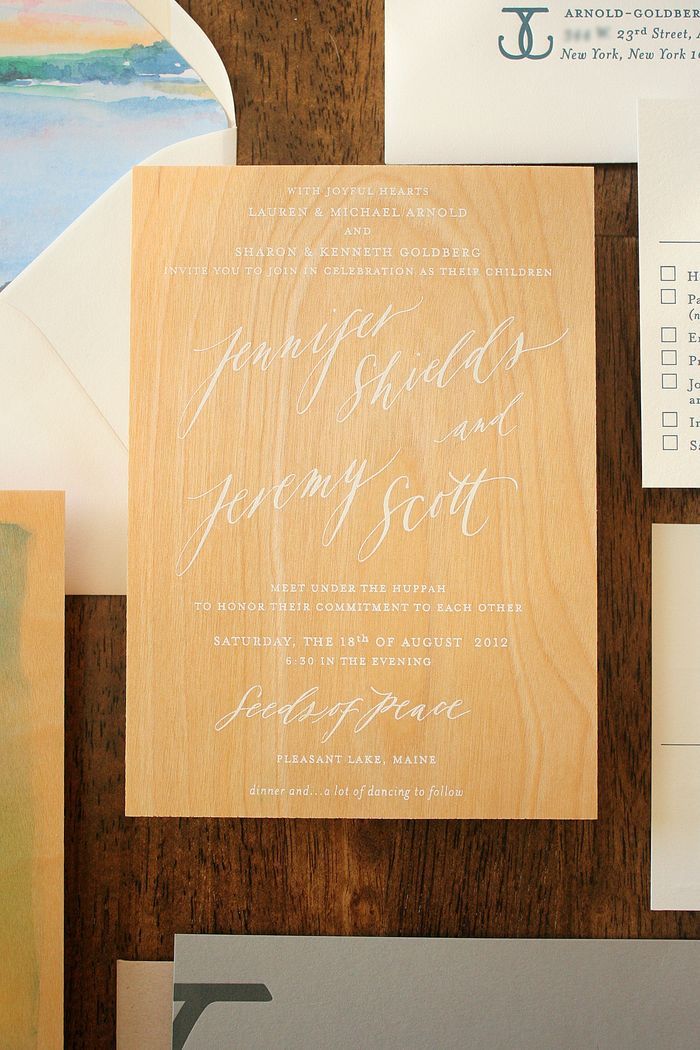 ARNOLD-GOLDBER
23rd Street, A
New York, New York 10
WITH JOYFUL HEARTS
LAUREN & MICHAEL ARNOLD
AND
SHARON & KENNETH GOLDBERG
INVITE YOU TO JOIN IN CELEBRATION AS THEIR CHILDREN
Jennifer
Shields
and
Jeremy
Scott
MEET UNDER THE HUPPAH
TO HONOR THEIR COMMITMENT TO EACH OTHER
SATURDAY, THE 18th OF AUGUST 2012
6:30 IN THE EVENING
Seeds of Peace
PLEASANT LAKE, MAINE
dinner and...a lot of dancing to follow
H
Pa
(n
En
Pr
Jo
an
In
Sa